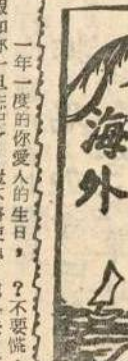 海外
一年一度的你愛人的生日，？不要慌